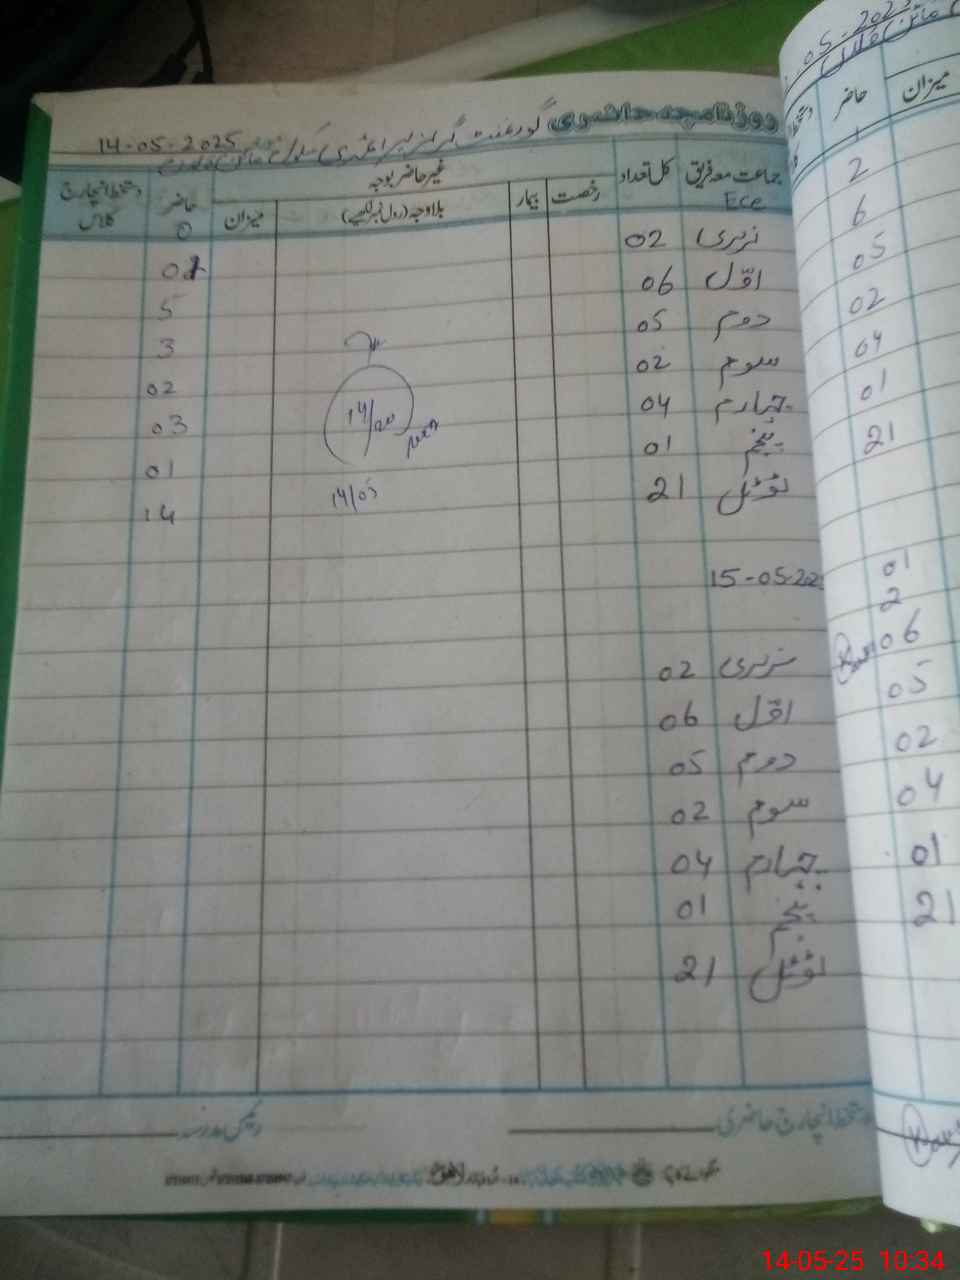 روزنامچہ حاضری گورنمنٹ گرلز پرائمری سکول 14-05-2025
جماعت معہ فریق کل تعداد غیر حاضر بوجہ حاضر دستخط انچارج کلاس
رخصت بیمار بلاوجہ (رول نمبر لکھیے) میزان
Ece 0
نرسری 02 01
اوّل 06 5
دوم 05 3
سوم 02 02
چہارم 04 03
پنجم 01 01
ٹوٹل 21 14
14/20
14/05
15-05-202
نرسری 02
اوّل 06
دوم 05
سوم 02
چہارم 04
پنجم 01
ٹوٹل 21
دستخط انچارج حاضری
رئیس مدرسہ
05-2025
میزان حاضر
1
2
6
05
02
04
01
21
01
2
06
05
02
04
01
21
14-05-25 10:34